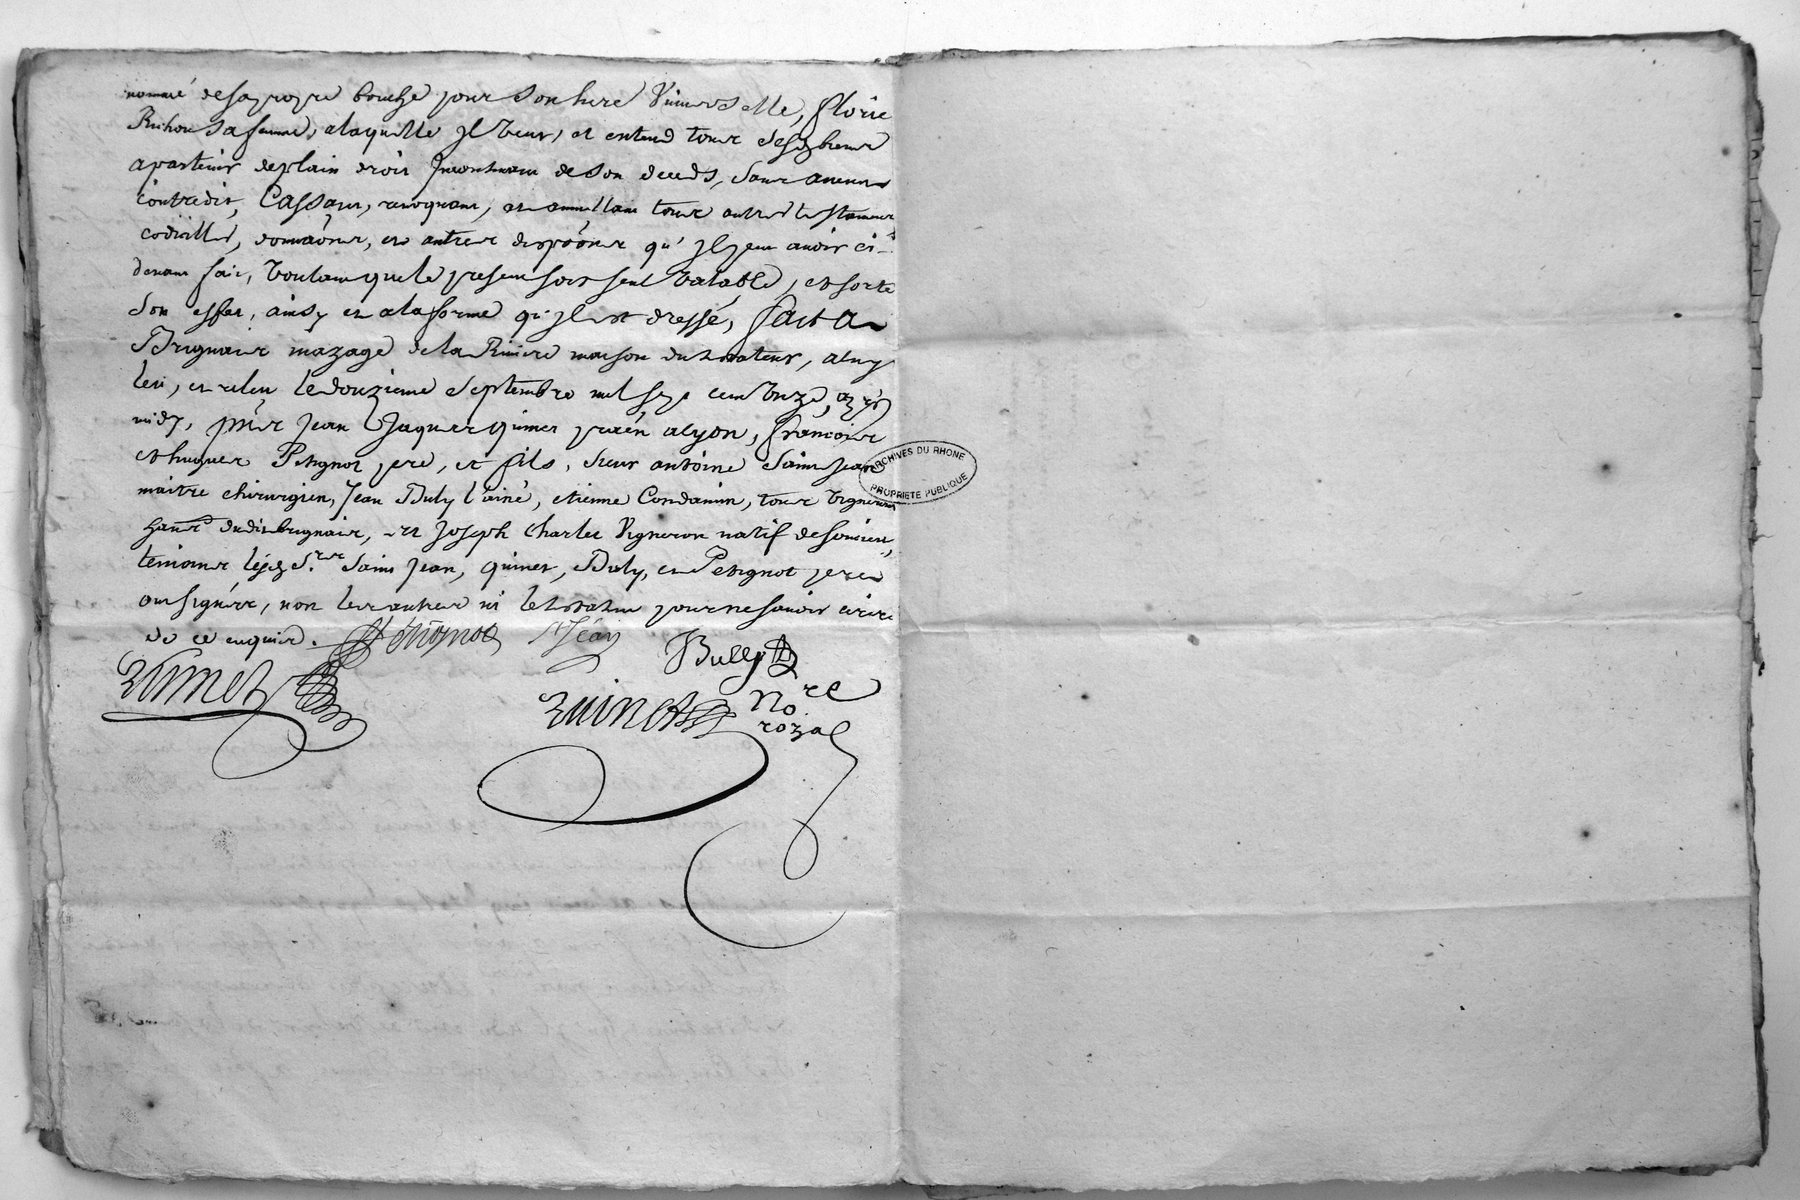 nommé de sa propre bouche pour son here Vniverselle, florie
Richon sa femme, alaquelle Jl veut, et entend tous sesd biens
apartenir de plain droit Jncontinant de son deceds, sans aucun
contredit, Cassant, revoquant, et annullant tous autres testamens
codicilles, donnaõns, et autres dispoõns qu'Jl peut avoir ci-
devant fait, voulant que le present soit seul valable, et sorte
son effet, ainsy et alaforme qu'Jl est dressé, fait a
Brignais mazage de la Riviere maison du testateur, aluy
leu, et releu le douzieme septembre mil sept cent onze, apres
midy, pñts Jean Jaques quinet pratien a lyon, francois
et hugues Petignot pere, et fils, sieur antoine Saint Jean
maitre chirurgien, Jean Buly l'ainé, etienne Condamin, tous vignerons
hants dudit brignais, et Joseph Charles Vigneron natif de soucieu,
temoins lesqs Srs Saint Jean, quinet, Buly, et Petignot pere
ont signéz, non les autres ni le testateur pour ne savoir ecrire
de ce enquis.
Petignot St Jean
Bully
quinet
quinet Nore
royal
ARCHIVES DU RHONE
PROPRIETE PUBLIQUE